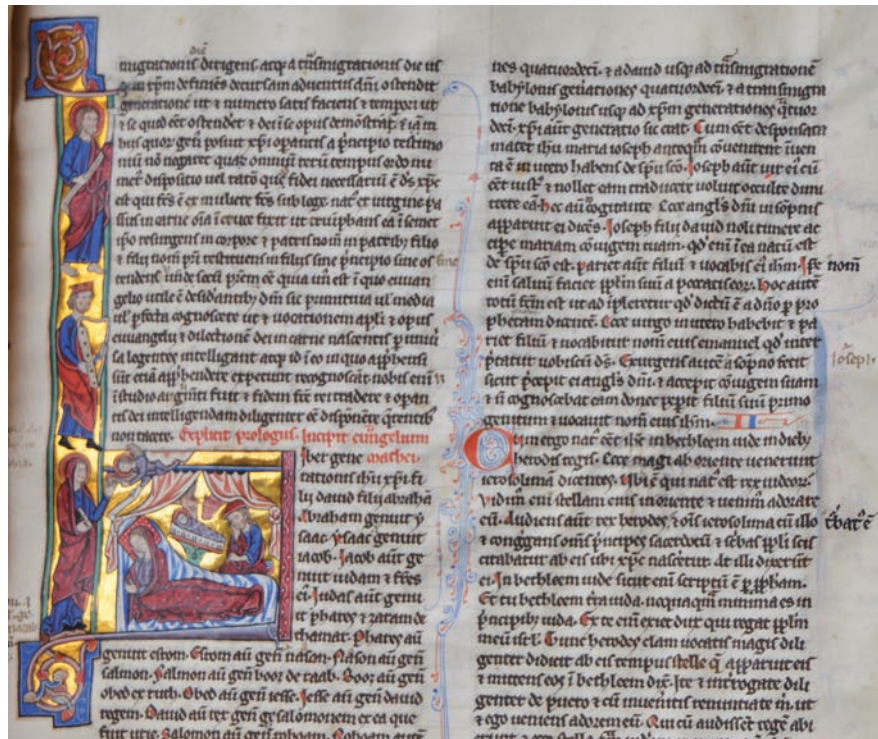 diē
migrationis dirigens atq; a trāsmigrationis die us
q; in xp̄m definiēs decursam aduentus dn̄i ostendit
generationē ut & numero satis faciens & tempori ut
& se quod eēt ostendet & dei ī se opus demōstrās & iā in
hiis quor̄ gen̄ posuit xp̄i opantis a p̄ncipio testimo
niū nō negaret quar̄ omniū rerū tempus ordo nu
mer̄ dispositio uel ratō quę fidei necessariū ē ds̄ xp̄c
est qui fc̄s ē ex muliere fc̄s sub lege nat̄ ex uirgine pa
ssus in carne om̄ia ī cruce fixit ut triūphans ea ī semet
ip̄o resurgens in corpore & patris nom̄ in patrib; filio
& filii nom̄ pr̄i restituens in filiis sine p̄ncipio sine
fine
tendens unde secū pr̄em eē quia un̄ est ī quo euuan
gelio utile ē desidātib; dm̄ sic p̄ma uia ul̄ media
ul̄ p̄fecta cognoscere ut & uocationem apl̄i & opus
euuangelii & dilectionē dei in carne nascentis p̄ uniū
sa legentes intelligant atq; id ī eo in quo app̄hensi
sūt & iā app̄hendere expetunt recognoscāt nobis enī
ī studio argm̄ti fuit & fidem fc̄ę rei tradere & opan
tis dei intelligendam diligenter eē dispōnē q̄rentib;
non tacere. Explicit prologus. Incipit euuāgelium
mathei.
iber gene
rationis ih̄u xp̄i fi
lii dauid filii abrahā
Abraham genuit y
saac. ysaac genuit
iacob. Iacob aut̄ ge
nuit iudam & fr̄es
ei. Iudas aut̄ genu
it phares & zaram de
thamar. Phares au
genuit esrom. Esrom aū gen̄ nason. Nason aū gen̄
salmon. Salmon aū gen̄ booz de raab. Booz aū gen̄
obed ex ruth. Obed aū gen̄ iesse. Iesse aū gen̄ dauid
regem. Dauid aū rex gen̄ gesalomonem ex ea que
fuit urie. Salomon aū gen̄ roboam. Roboam autē
nes quatuordeci. & a dauid usq; ad trāsmigrationē
babylonis gen̄ationes quatuordeci. & a transmigra
tione babylonis usq; ad xp̄m generationes q̄tuor
deci. xp̄i aut̄ generatio sic erat. Cum eēt desponsata
mater ih̄u maria ioseph anteq̄m cōuenirent īuen
ta ē in utero habens de sp̄u sc̄o. Ioseph aut̄ uir ei cū
eēt iust̄ & nollet eam traducere uoluit occulte dimi
ttere eā. hec aū cogitante. Ecce angl̄s dn̄i in sōpnis
apparuit ei dicēs. Ioseph filii dauid noli timere ac
cipe mariam cōiugem tuam. qd̄ enī ī ea natū est
de sp̄u sc̄o est. pariet aut̄ filiū & uocabis ei ih̄m. Ipse
nom̄
enī saluū faciet ppl̄m suū a peccatis eor̄. hoc autē
totū fc̄m est ut ad īpleretur qd̄ dictū ē a dn̄o p̄ pro
phetam dicentē. Ecce uirgo in utero habebit & pa
riet filiū & uocabitur nom̄ eius emanuel qd̄ inter
p̄tatur nobiscū ds̄. Exurgens autē a sōpno fecit
Ioseph.
sicut p̄cepit ei angl̄s dn̄i. & accepit cōiugem suam
& n̄ cognoscebat eam donec pep̄it filiū suū primo
genitum & uocauit nom̄ eius ih̄m. II
Cū ergo nat̄ eēt ih̄c in bethleem iude in dieb;
herodis regis. Ecce magi ab oriente uenerunt
ierosolimā dicentes. Ubi ē qui nat̄ est rex iudeor̄.
Vidim̄ enī stellam eius in oriente & uenim̄ adorare
eū. Audiens aut̄ rex herodes & om̄s ierosolima cū illo
t̄bat̄ ē
& congregans om̄s p̄ncipes sacerdotū & sc̄bas ppl̄i scis
citabatur ab eis ubi xp̄c nascetur. at illi dixer̄t
ei. In bethleem iude sicut enī scriptū ē p̄ pp̄ham.
Et tu bethleem t̄ra iuda. nequaq̄m minima es in
p̄ncipib; iuda. Ex te enī exiet dux qui regat ppl̄m
meū isrl̄. Tunc herodes clam uocatis magis dili
genter didicit ab eis tempus stelle q̄ apparuit eis
& mittens eos ī bethleem dix̄. Ite & int̄rogate dili
genter de puero & cū inueītis renuntiate m̄. ut
& ego ueniens adorem eū. Qui cū audissēt regē abi